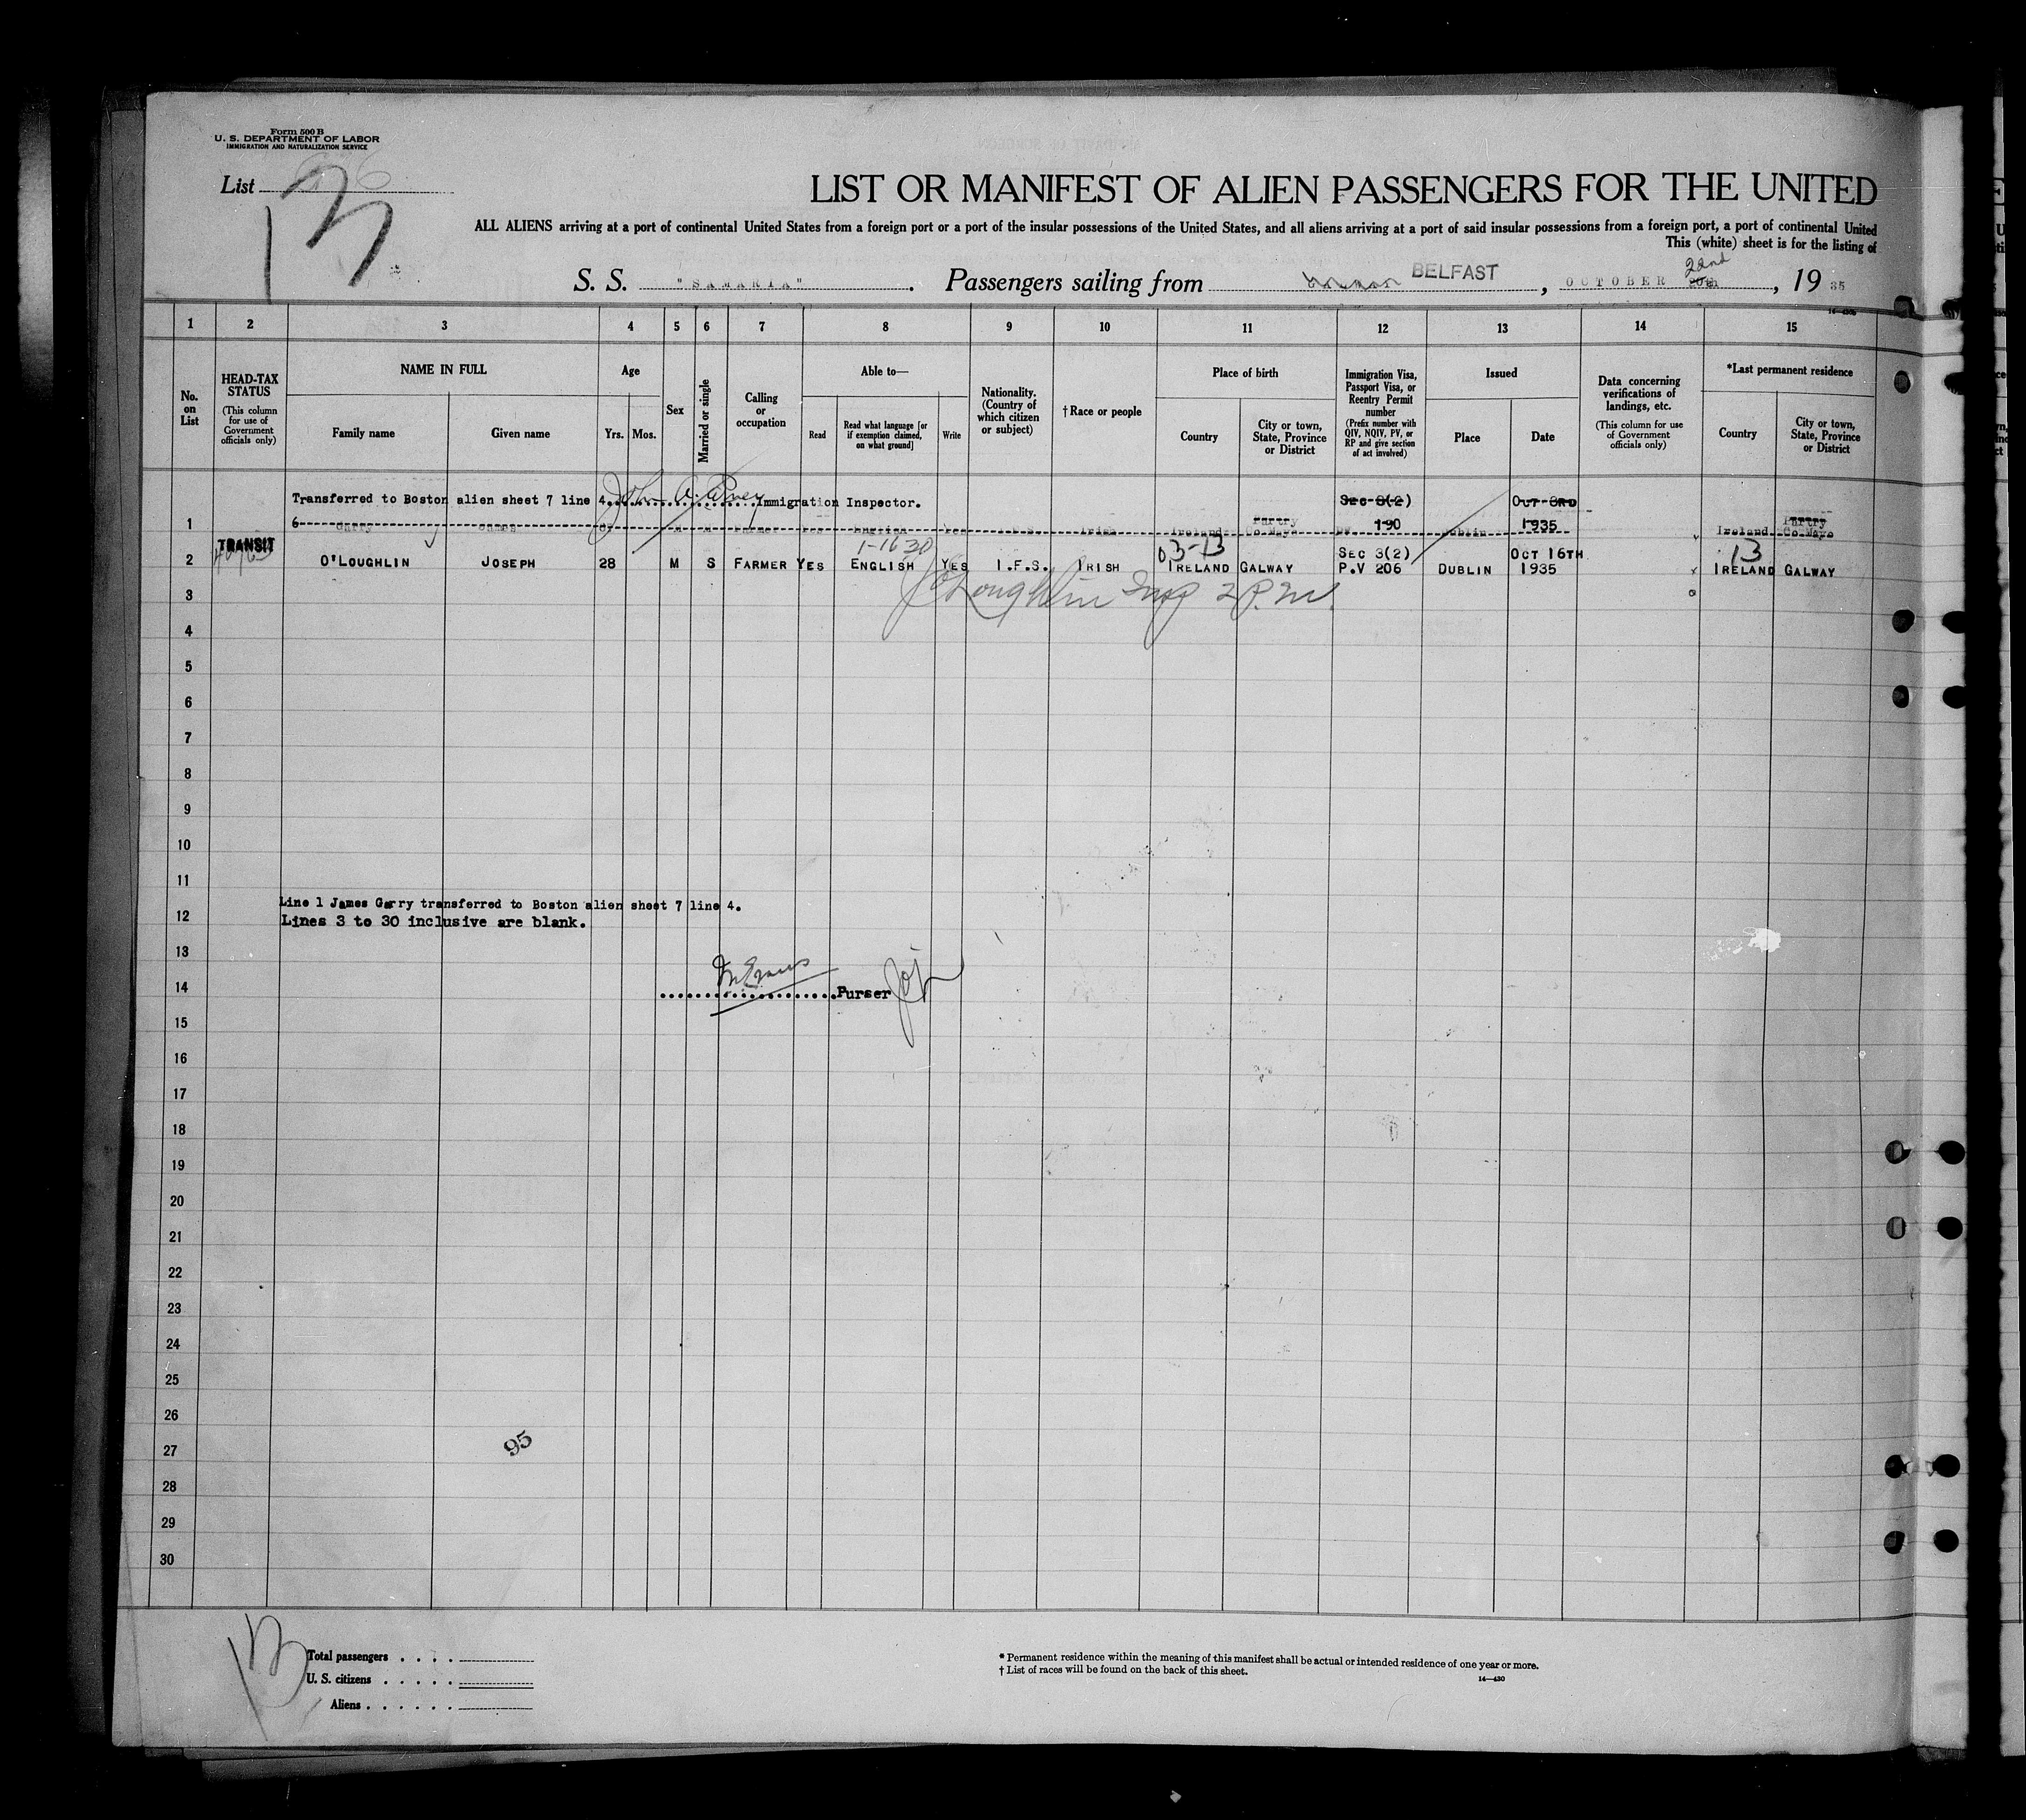 Form 500 B
U. S. DEPARTMENT OF LABOR
IMMIGRATION AND NATURALIZATION SERVICE
List
13
LIST OR MANIFEST OF ALIEN PASSENGERS FOR THE UNITED
ALL ALIENS arriving at a port of continental United States from a foreign port or a port of the insular possessions of the United States, and all aliens arriving at a port of said insular possessions from a foreign port, a port of continental United
This (white) sheet is for the listing of
S. S. "SAMARIA". Passengers sailing from BELFAST, OCTOBER 22nd 20th, 19 35
14—430
1 2 3 4 5 6 7 8 9 10 11 12 13 14 15
No. on List
HEAD-TAX STATUS (This column for use of Government officials only)
NAME IN FULL
Family name Given name
Age
Yrs. Mos.
Sex
Married or single
Calling or occupation
Able to—
Read Read what language [or if exemption claimed, on what ground] Write
Nationality. (Country of which citizen or subject)
†Race or people
Place of birth
Country City or town, State, Province or District
Immigration Visa, Passport Visa, or Reentry Permit number (Prefix number with QIV, NQIV, PV, or RP and give section of act involved)
Issued
Place Date
Data concerning verifications of landings, etc. (This column for use of Government officials only)
*Last permanent residence
Country City or town, State, Province or District
Transferred to Boston alien sheet 7 line 4. John A. Immigration Inspector. Sec 3(2) Oct 3rd
1 Garry James Yes English Yes Irish Ireland Partry Co.Mayo 190 Dublin 1935 Ireland Partry Co.Mayo
TRANSIT 1-1630 03-13 Sec 3(2) Oct 16th 13
2 O'Loughlin Joseph 28 M S Farmer Yes English Yes I.F.S. Irish Ireland Galway P.V 206 Dublin 1935 Ireland Galway
3 J O'Loughlin Insp 2 P.M.
4
5
6
7
8
9
10
11
Line 1 James Garry transferred to Boston alien sheet 7 line 4.
12 Lines 3 to 30 inclusive are blank.
13
14 Purser
15
16
17
18
19
20
21
22
23
24
25
26
27 95
28
29
30
13
Total passengers
U. S. citizens
Aliens
* Permanent residence within the meaning of this manifest shall be actual or intended residence of one year or more.
† List of races will be found on the back of this sheet.
14—430